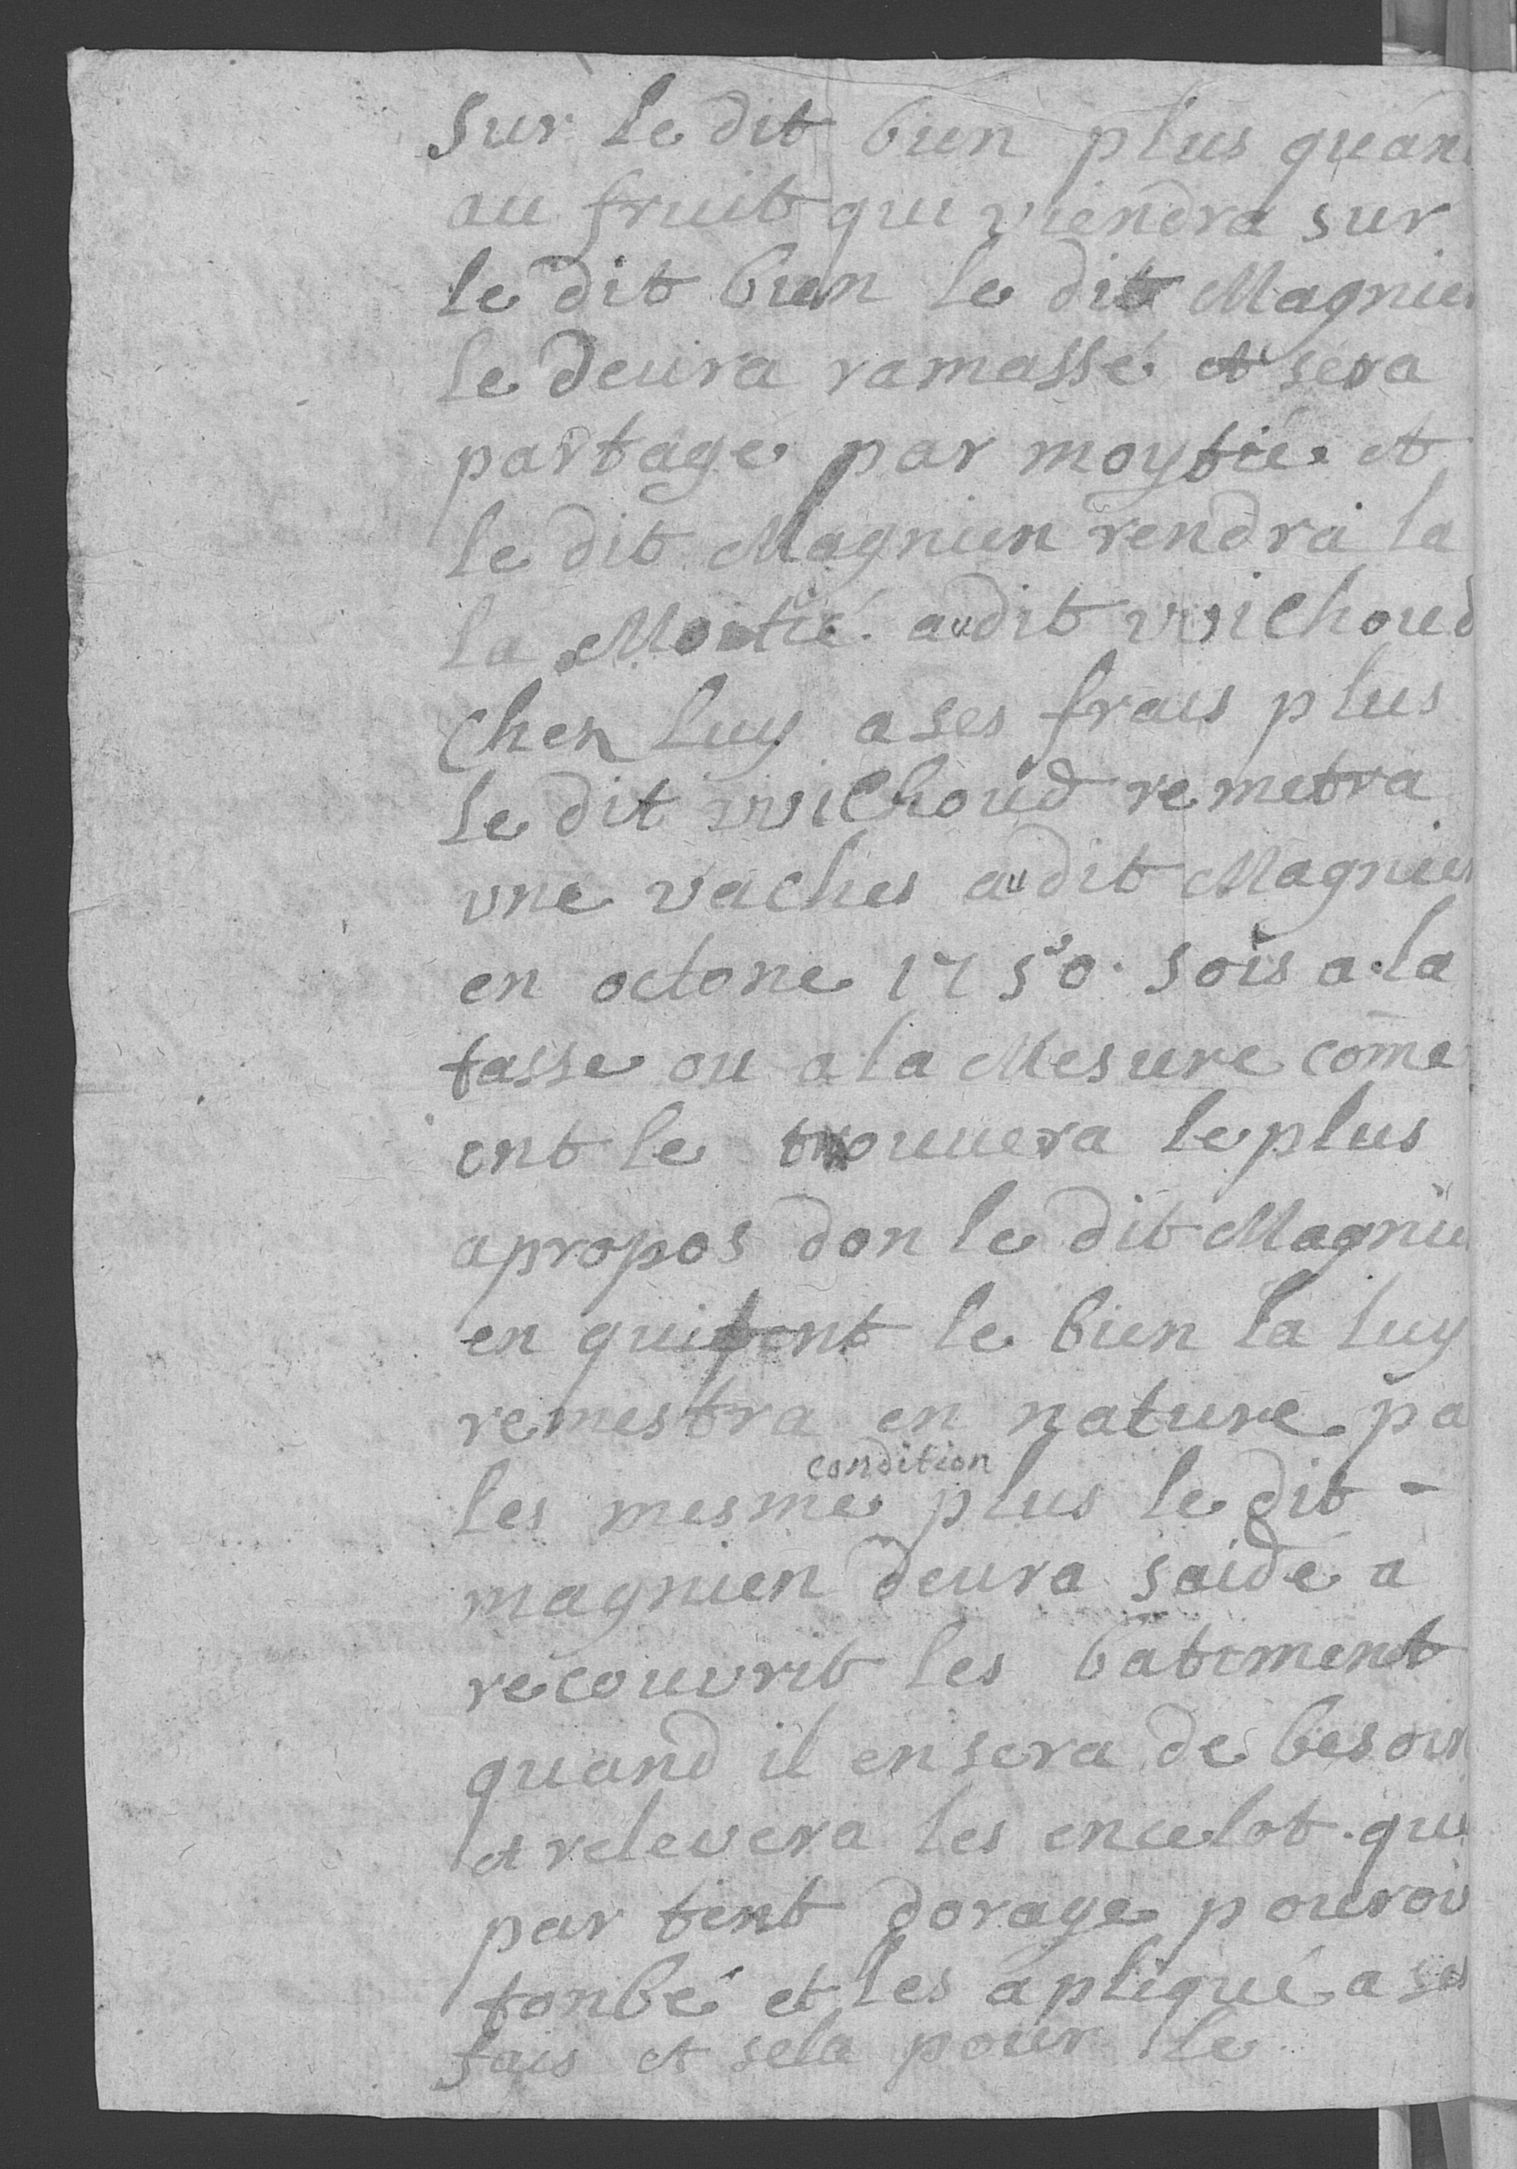 Sur le dit bien plus quan
au fruit qui viendra sur
le dit bien le dit Magnien
le devra ramassé et sera
partage par moytié et
le dit Magnien rendra la
la Moitié audit wichoud
chez luy a ses frais plus
le dit wichoud remetra
vne vaches audit Magnien
en octone 1750 sois a la
tasse ou a la Mesure come
ont le trouuera le plus
apropos don le dit Magnie
en quitent le bien la luy
remestra en nature pa
condition
les mesme plus le dit -
magnien deura saidé a
recouvrit les batiment
quand il en sera de besoin
et relevera les encelot qui
par tent dorage pouroi
tonbé et les apliqué a ses
fais et sela pour le